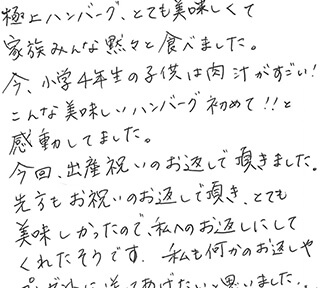 極上ハンバーグ、とても美味しくて
家族みんな黙々と食べました。
今、小学4年生の子供は肉汁がすごい!
こんな美味しいハンバーグ初めて!!と
感動してました。
今回、出産祝いのお返しで頂きました。
先方もお祝いのお返しで頂き、とても
美味しかったので、私へのお返しにして
くれたそうです。私も何かのお返しや
プレゼントに送ってあげたいと思いました。